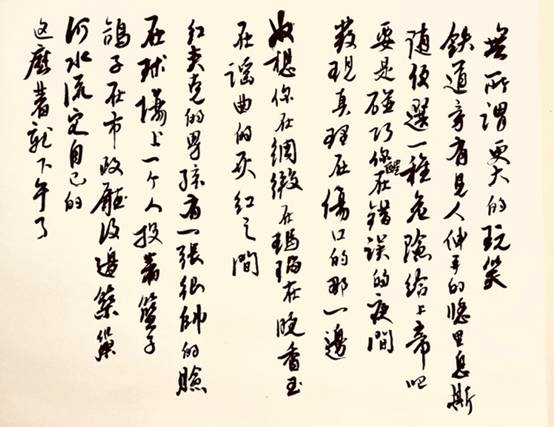 無所謂更大的玩笑
鐵道旁有見人伸手的悒里息斯
隨便選一種危險給上帝吧
要是碰巧你醒在錯誤的夜間
發現真理在傷口的那一邊
奴想你在綢緞在瑪瑙在晚香玉
在謠曲的灰紅之間
紅夾克的男孩有一張很帥的臉
在球場上一个人投著籃子
鴿子在市政廳後邊築巢
河水流它自己的
這麼著就下午了